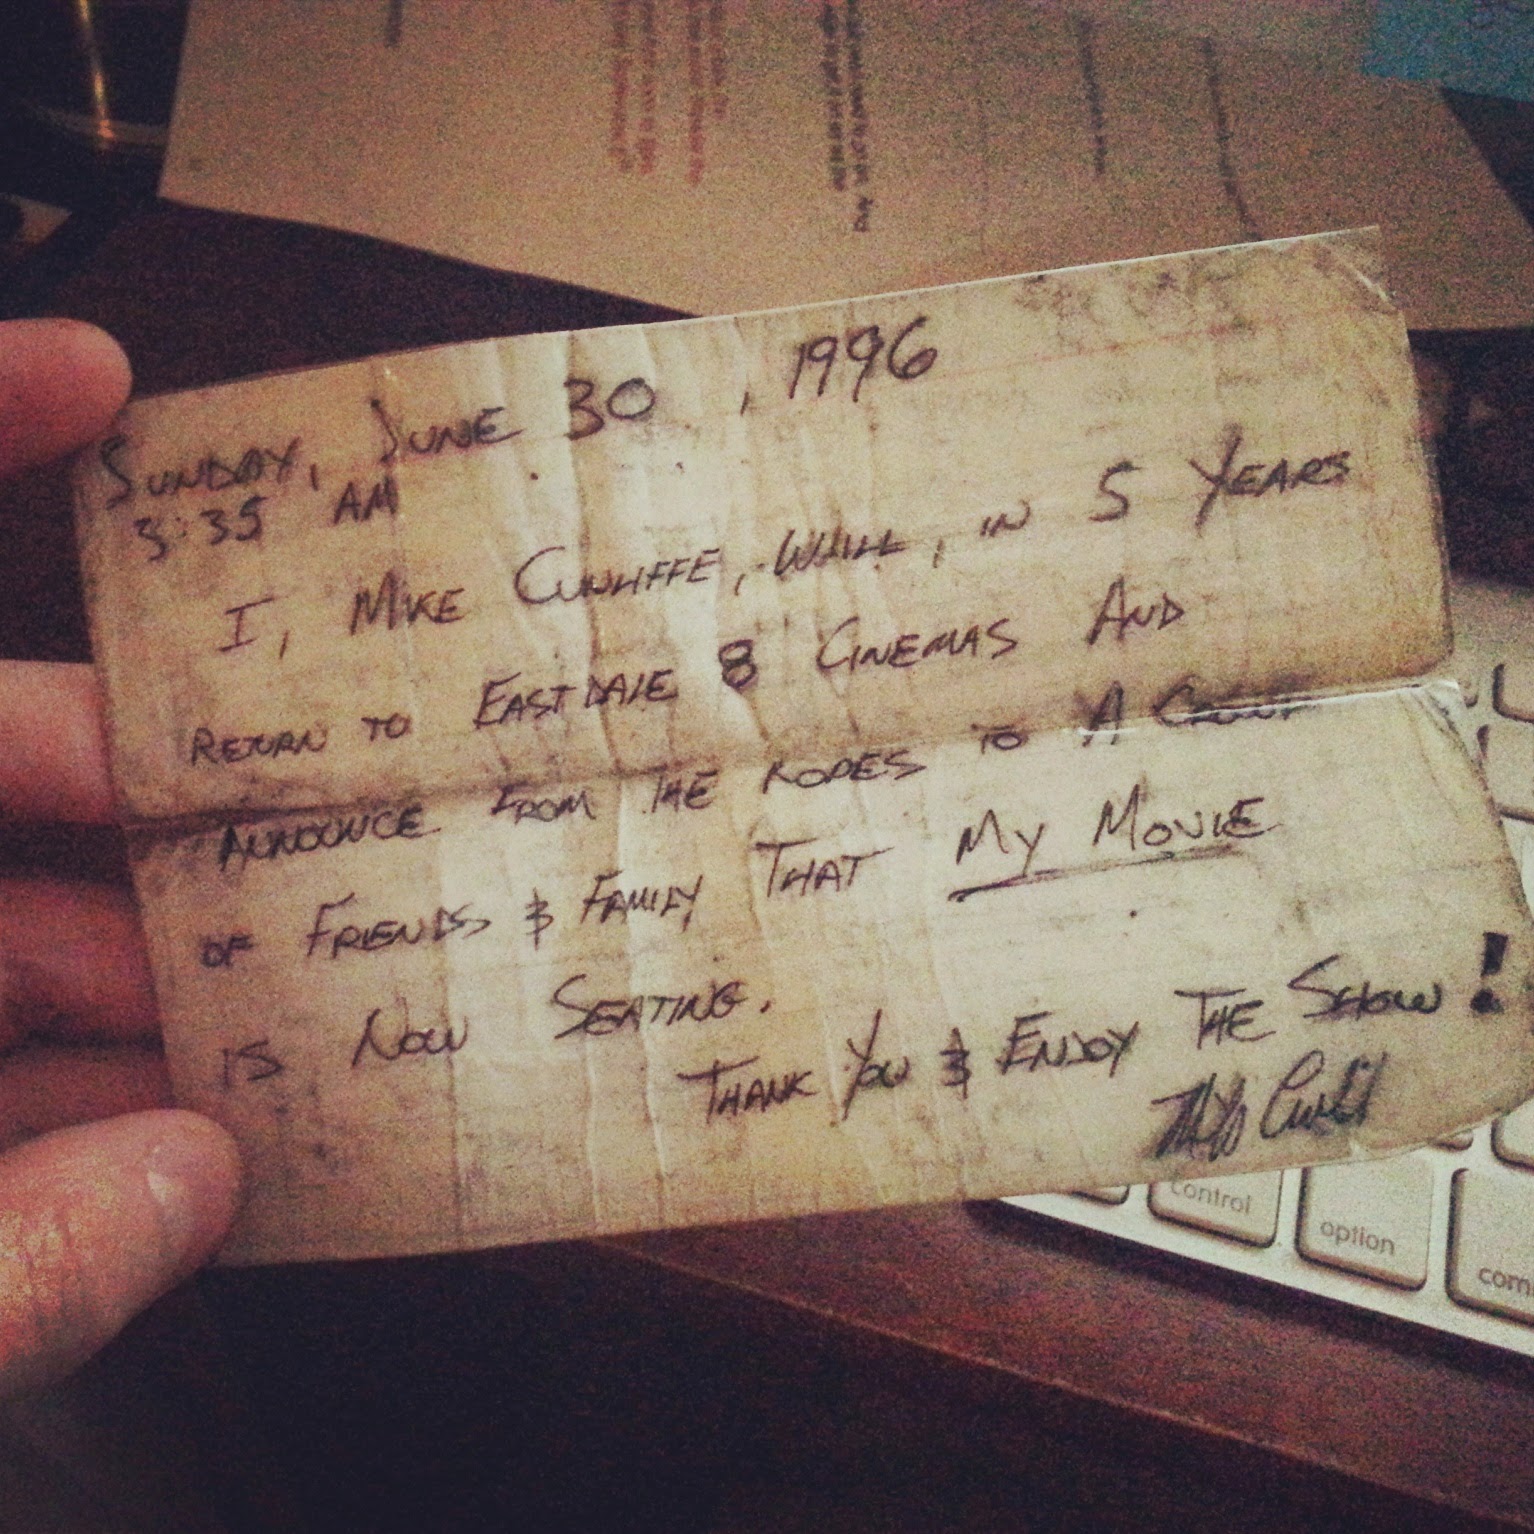 SUNDAY, JUNE 30, 1996
3:35 AM
I, MIKE CUNLIFFE, WILL, IN 5 YEARS
RETURN TO EASTDALE 8 CINEMAS AND
ANNOUNCE FROM THE ROPES TO A GROUP
OF FRIENDS & FAMILY THAT MY MOVIE
IS NOW SEATING.
THANK YOU & ENJOY THE SHOW!
control
option
com